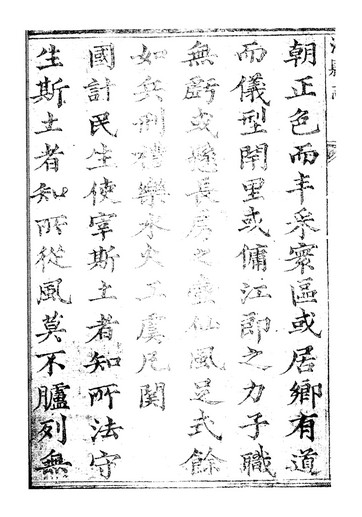 朝正色而丰采寰區或居鄉有道
而儀型閈里或傭江郎之力子職
無虧或懸長房之壺仙風足式餘
如兵刑禮樂水火工虞凡関
國計民生使宰斯土者知所法守
生斯土者知所從風莫不臚列無